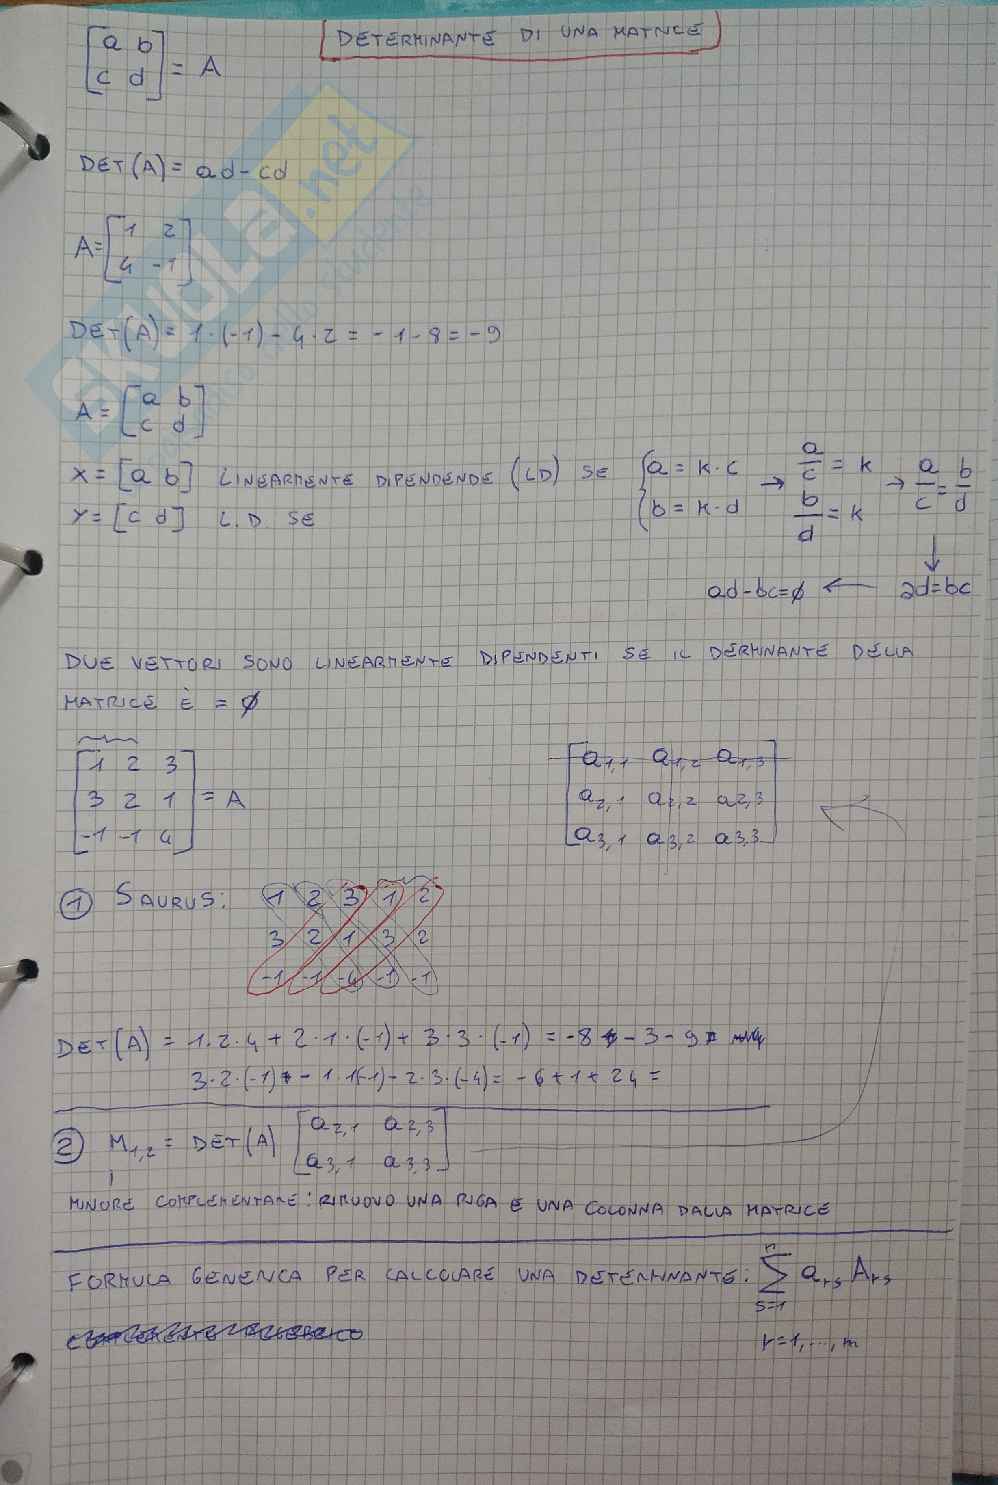 DETERMINANTE DI UNA MATRICE
[a b
c d] = A
DET(A) = ad-cd
A=[1 2
4 -1]
DET(A) = 1·(-1) - 4·2 = -1-8 = -9
A = [a b
c d]
X = [a b] LINEARMENTE DIPENDENDE (LD) SE {a = k·c → a/c = k → a/c = b/d
Y = [c d] L.D. SE b = k·d b/d = k
ad-bc=∅ ← ad=bc
DUE VETTORI SONO LINEARMENTE DIPENDENTI SE IL DERMINANTE DELLA
MATRICE È = ∅
[1 2 3
3 2 1
-1 -1 4] = A
[a1,1 a1,2 a1,3
a2,1 a2,2 a2,3
a3,1 a3,2 a3,3]
① SAURUS: 1 2 3 1 2
3 2 1 3 2
-1 -1 -4 -1 -1
DET(A) = 1·2·4 + 2·1·(-1) + 3·3·(-1) = -8 - 3 - 9
3·2·(-1) - 1·1(-1) - 2·3·(-4) = -6+1+24 =
② M1,2 = DET(A) [a2,1 a2,3
a3,1 a3,3]
MINORE COMPLEMENTARE: RIMUOVO UNA RIGA E UNA COLONNA DALLA MATRICE
FORMULA GENERICA PER CALCOLARE UNA DETERMINANTE: n∑s=1 ars Ars
r=1,...,m
SKUOLA.net